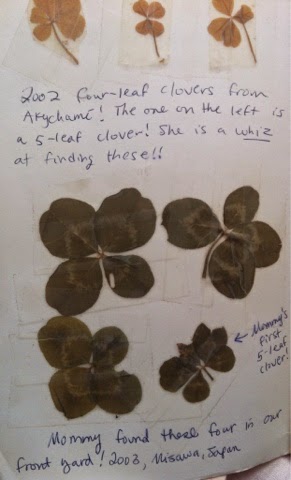 2002 four-leaf clovers from
Akychamt! The one on the left is
a 5-leaf clover! She is a whiz
at finding these!!
Mommy's
first
5-leaf
clover!
Mommy found these four in our
front yard! 2003, Misawa, Japan